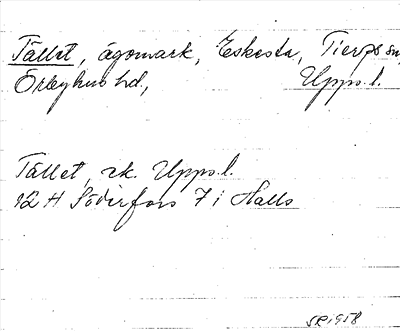 Tället, ägomark, Eskesta, Tierps sn,
Örbyhus hd, Upps. l.
Tället, rk. Upps. l.
12 H Söderfors 7 i Halls
SR 1958